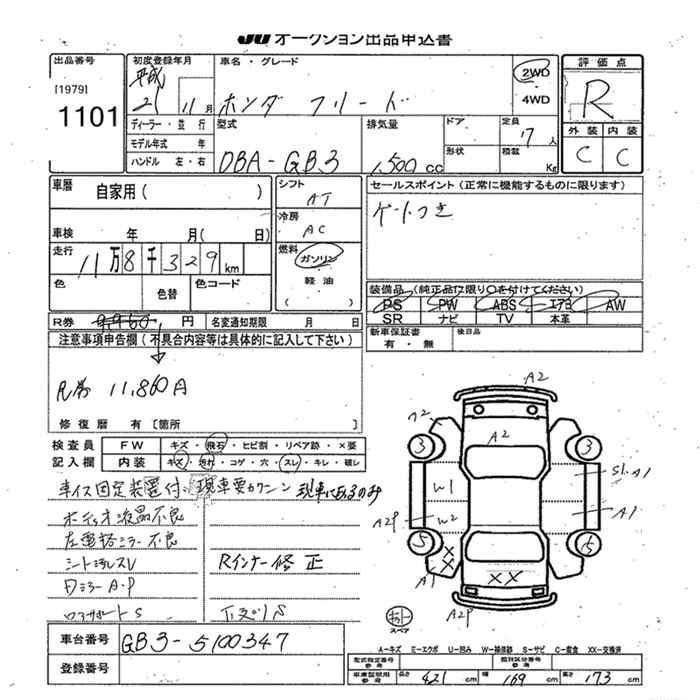 JU オークション出品申込書
出品番号
[1979]
1101
初度登録年月
平成
21 11月
車名・グレード
ホンダ フリード
2WD
4WD
評価点
R
外装 内装
C C
ディーラー・並行
モデル年式 年
ハンドル 左・右
型式
DBA-GB3
排気量
1,500cc
ドア
形状
定員
7人
積載
Kg
車暦 自家用( )
車検 年 月( 日)
走行
11万8千329km
色
色替
色コード
シフト
AT
冷房
AC
燃料
ガソリン
軽油
( )
セールスポイント(正常に機能するものに限ります)
ゲートつき
装備品(純正品に限り○を付けてください)
PS PW ABS エアB AW
SR ナビ TV 本革
新車保証書
有・無
後日品
R券 9,960円 名変通知期限 月 日
注意事項申告欄(不具合内容等は具体的に記入して下さい)
R券 11,860円
修復暦 有[箇所 ]
検査員
記入欄
FW キズ・飛石・ヒビ割・リペア跡・×要
内装 キズ・汚れ・コゲ・穴・スレ・キレ・破レ
車イス固定装置付 現車要カクニン 現車にあるのみ
左電格ミラー不良
Rインナー修正
A2
A2
3
3
W1
W2
A2P
S1
A1
A1
5
A1
XX
XX
A2P
スペア
A-キズ E-エクボ U-凹み W-補修跡 S-サビ C-腐食 XX-交換済
車台番号 GB3-5100347
登録番号
型式指定番号
参考
類別区分番号
参考
車庫証明用
参考
長さ 421cm 幅 169cm 高さ 173cm